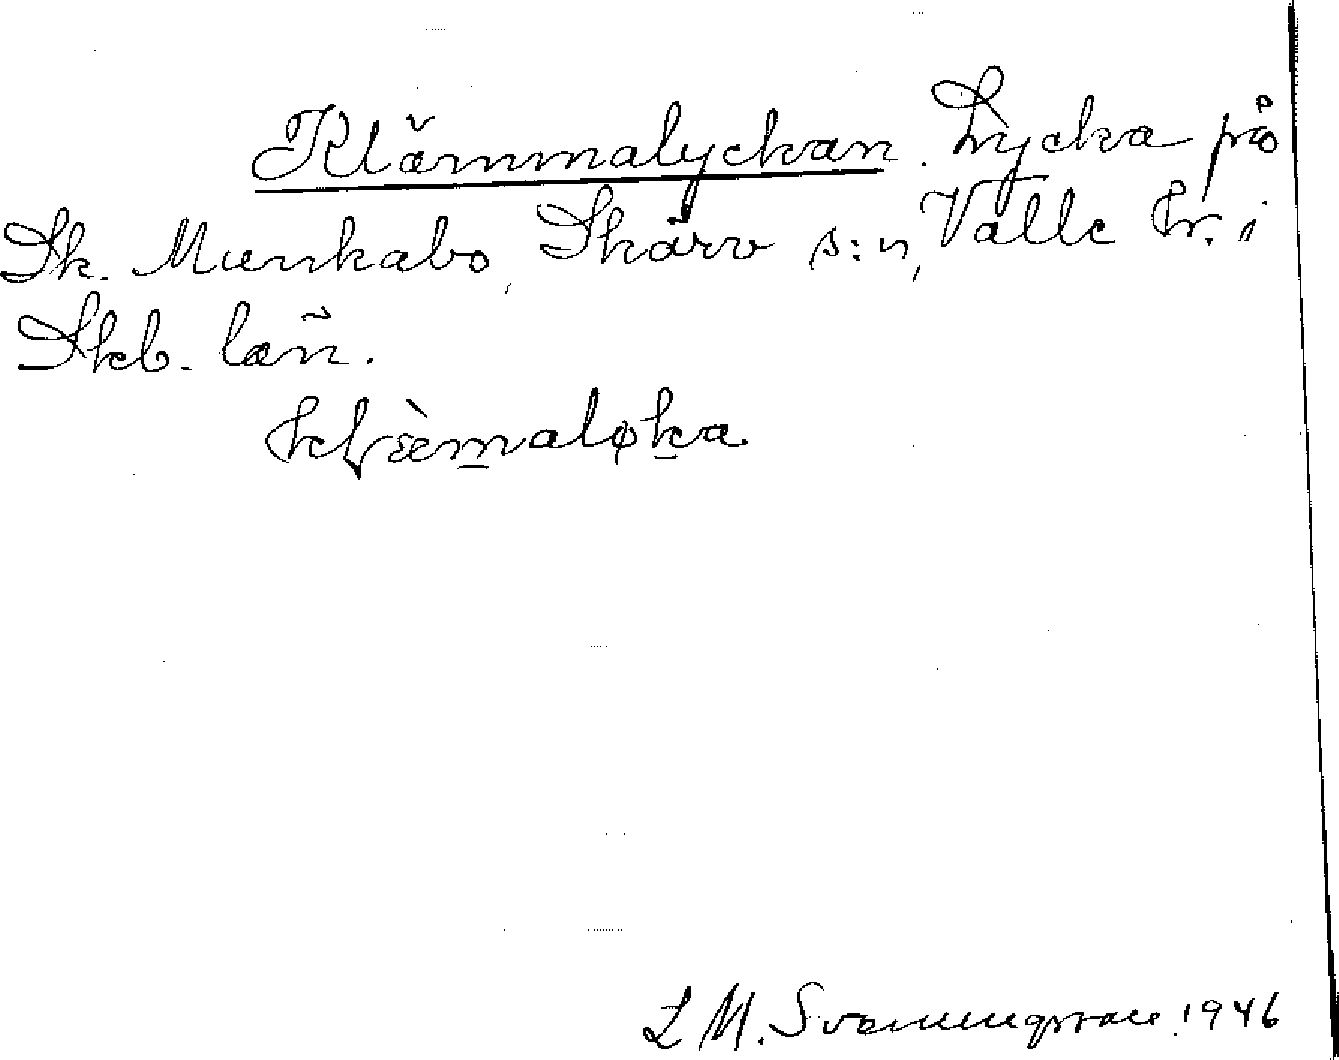 Klämmalyckan. Lycka på
Sk. Munkabo, Skärv s:n, Valle hr. i
Skb. län.
L M. Svenungsson. 1946